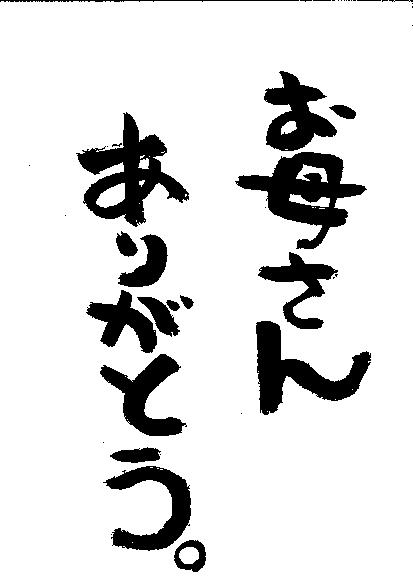 お母さん
ありがとう。